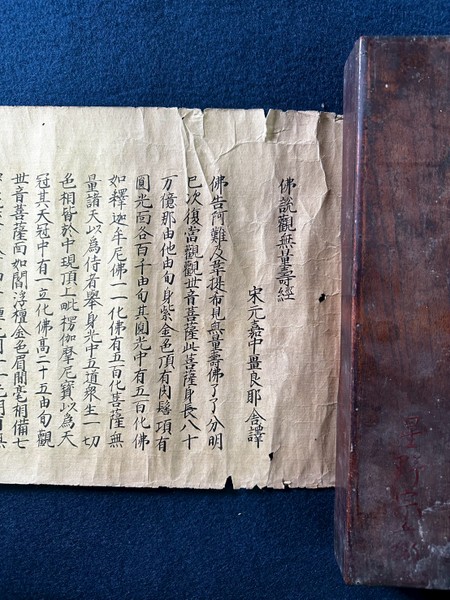 佛說觀無量壽經
宋元嘉中畺良耶舍譯
佛告阿難及韋提希見無量壽佛了了分明
已次復當觀觀世音菩薩此菩薩身長八十
万億那由他由旬身紫金色頂有肉髻項有
圓光面各百千由旬其圓光中有五百化佛
如釋迦牟尼佛一一化佛有五百化菩薩無
量諸天以為侍者舉身光中五道衆生一切
色相皆於中現頂上毗楞伽摩尼寶以為天
冠其天冠中有一立化佛高二十五由旬觀
世音菩薩面如閻浮檀金色眉間毫相備七